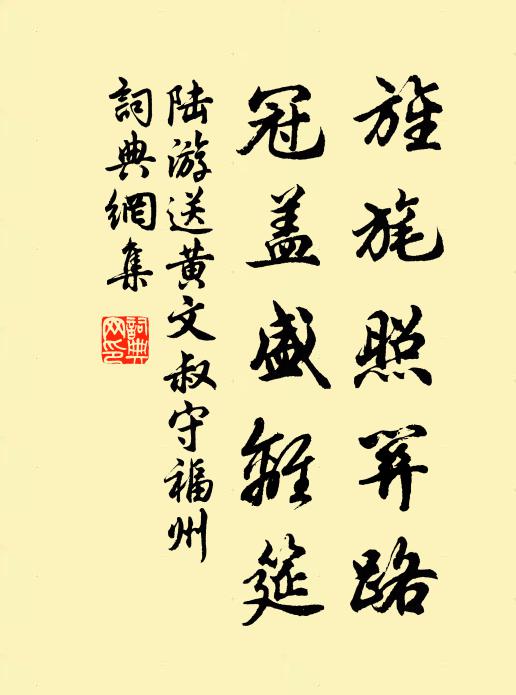 旌旄照關路
冠盖盛離筵
陆游送黄文叔守福州
詞典網集
詞典
网印